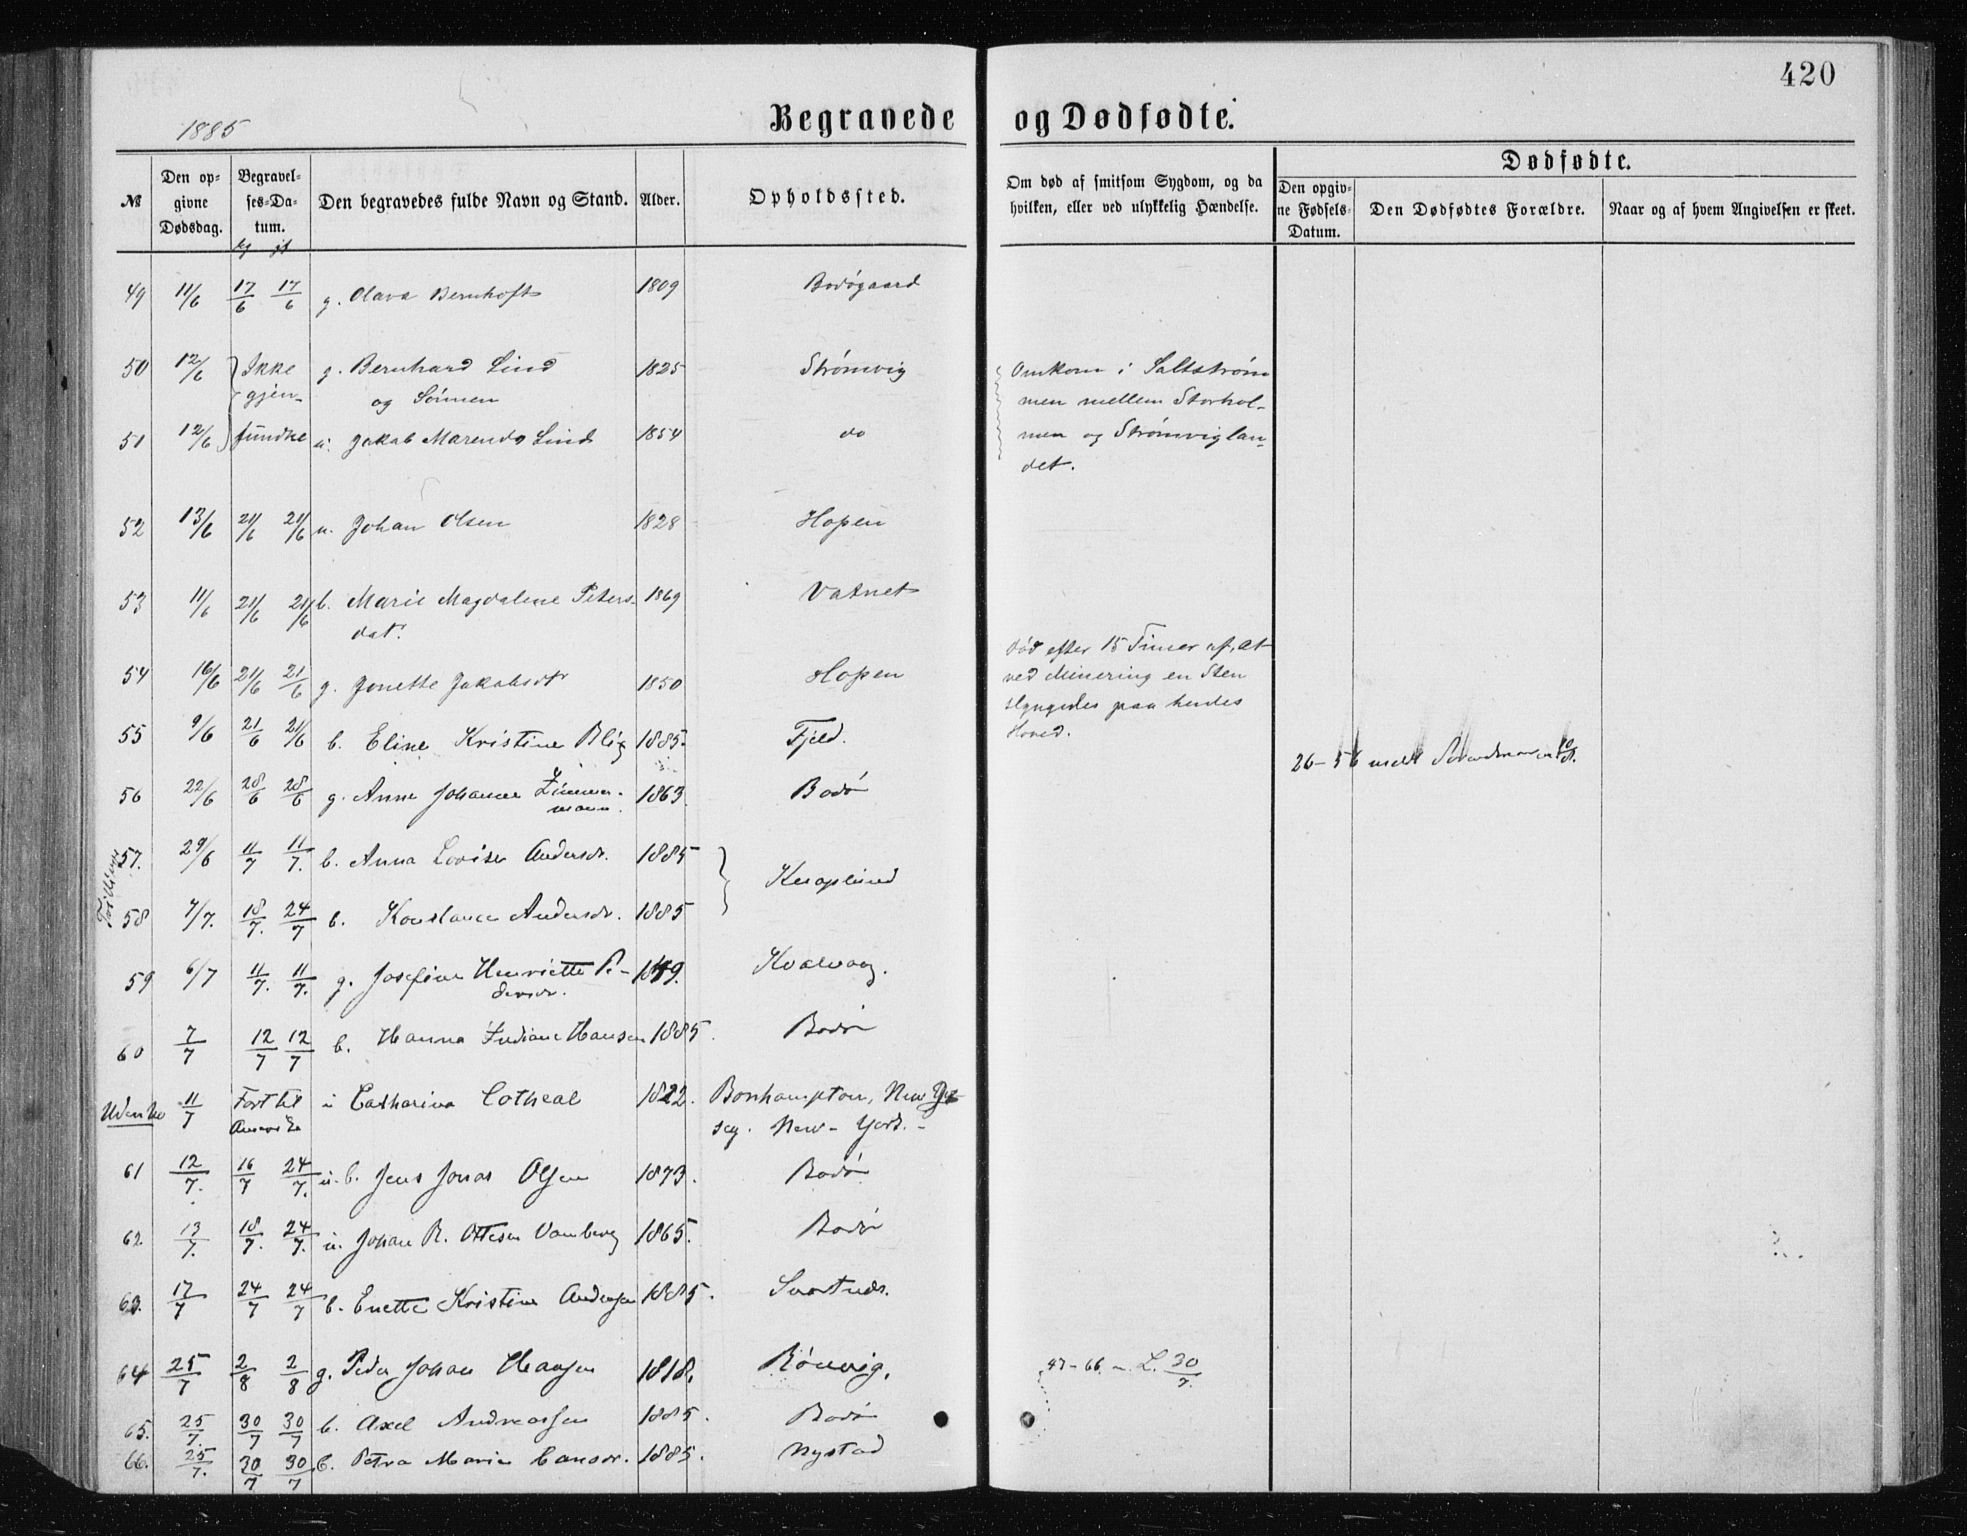 420
1885
Begravede og Dødfødte.
№
Den opgivne Dødsdag.
Begravelses-Datum.
Den begravedes fulde Navn og Stand.
Alder.
Opholdssted.
Om død af smitsom Sygdom, og da hvilken, eller ved ulykkelig Hændelse.
Dødfødte.
Den opgivne Fødsels-Datum.
Den Dødfødtes Forældre.
Naar og af hvem Angivelsen er skeet.
49 11/6 17/6 17/6 g. Olava Bernhoft 1809 Bodøgaard
50 12/6 Ikke g. Bernhard Lind 1825 Strømvig Omkom i Saltstrøm
gjen- og Sønnen men mellem Storhol-
51 12/6 fundne u. Jakob Marends Lind 1854 do men og Strømviglan-
det.
52 13/6 21/6 21/6 u. Johan Olsen 1828 Hopen
53 11/6 21/6 21/6 b. Marie Magdalene Peters- 1869 Vatnet
dat.
Død efter 15 Timer af, at
54 16/6 21/6 21/6 g. Jonette Jakobsdtr 1850 Hopen ved Minering en Sten
slyngedes paa hendes
Hoved.
55 9/6 21/6 21/6 b. Eline Kristine Blix 1885. Fjeld.
26-56 meldt
56 22/6 28/6 28/6 g. Anne Johanne Zimmer- 1863 Bodø
mann.
Tvillinger
57. 29/6 11/7 11/7. b. Anna Lovise Andersdr. 1885
58 7/7. 18/7. 24/7 b. Konstance Andersdr. 1885
59 6/7 11/7. 11/7. g. Josefine Henriette Pe- Kvalvaag.
dersdr.
60 7/7 12/7 12/7 b. Hanna Hansen 1885. Bodø
Uden No 11/7 Fort til u Catharina Cotheal 1822. Bonhampton, New
New-York.-
61 12/7. 16/7 24/7. u. b. Jens Jonas Olsen 1873. Bodø
62 13/7. 18/7. 24/7. u. Johan R. Ottesen 1865. Bodø
63. 17/7 24/7 24/7 b. Enette Kristine Andersen 1885.
64 25/7 2/8 2/8 g. Peder Johan Hansen 1818. Rønvig.
47-66 m. L. 30/7.
65. 25/7. 30/7 30/7 b. Axel Andreassen 1885. Bodø
66. 25/7. 30/7 30/7 b. Petra Marie 1885. Nystad